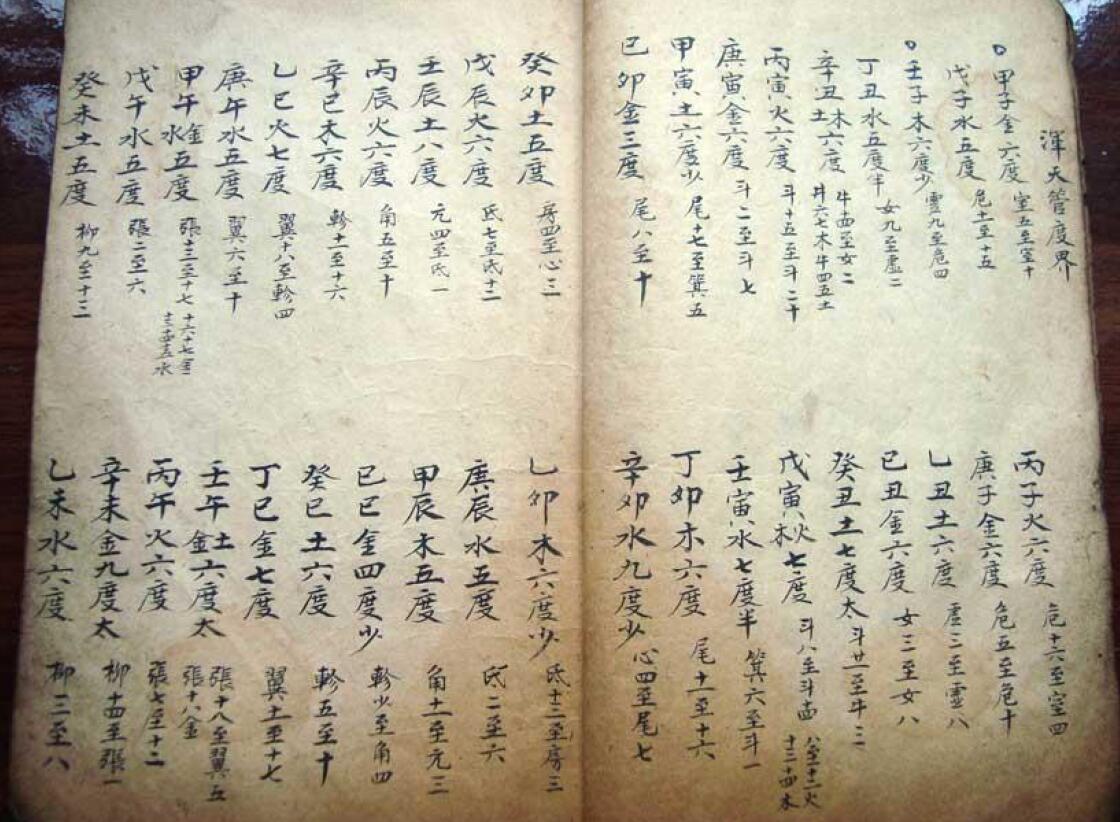 渾天管度界
甲子金六度 室五至室十
丙子火六度 危十六至室四
戊子水五度 危十一至十五
庚子金六度 危五至危十
壬子木六度少 虛九至危四
乙丑土六度 虛三至虛八
丁丑水五度半 女九至虛二
己丑金六度 女三至女八
辛丑木土六度 牛十四至女二
癸丑土七度太 斗廿一至牛三
丙寅火六度 斗十五至斗二十
戊寅火木七度 斗八至斗十四 八至十二火
十三十四木
庚寅金六度 斗二至斗七
壬寅水七度半 箕六至斗一
甲寅土六度少 尾十七至箕五
丁卯木六度 尾十一至十六
己卯金三度 尾八至十
辛卯水九度少 心四至尾七
癸卯土五度 房四至心三
乙卯木六度少 氐十三至房三
戊辰火六度 氐七至氐十二
庚辰水五度 氐二至六
壬辰土八度 亢四至氐一
甲辰木五度 角十一至亢三
丙辰火六度 角五至十
己巳金四度少 軫少至角四
辛巳木六度 軫十一至十六
癸巳土六度 軫五至十
乙巳火七度 翼十八至軫四
丁巳金七度 翼十一至十七
庚午水五度 翼六至十
壬午土金六度太 張十八至翼五
張十八金
甲午金水五度 張十三至十七 十六十七金
十三十四十五水
丙午火六度 張七至十二
戊午水五度 張二至六
辛未金九度太 柳十四至張一
癸未土五度 柳九至十三
乙未水六度 柳三至八